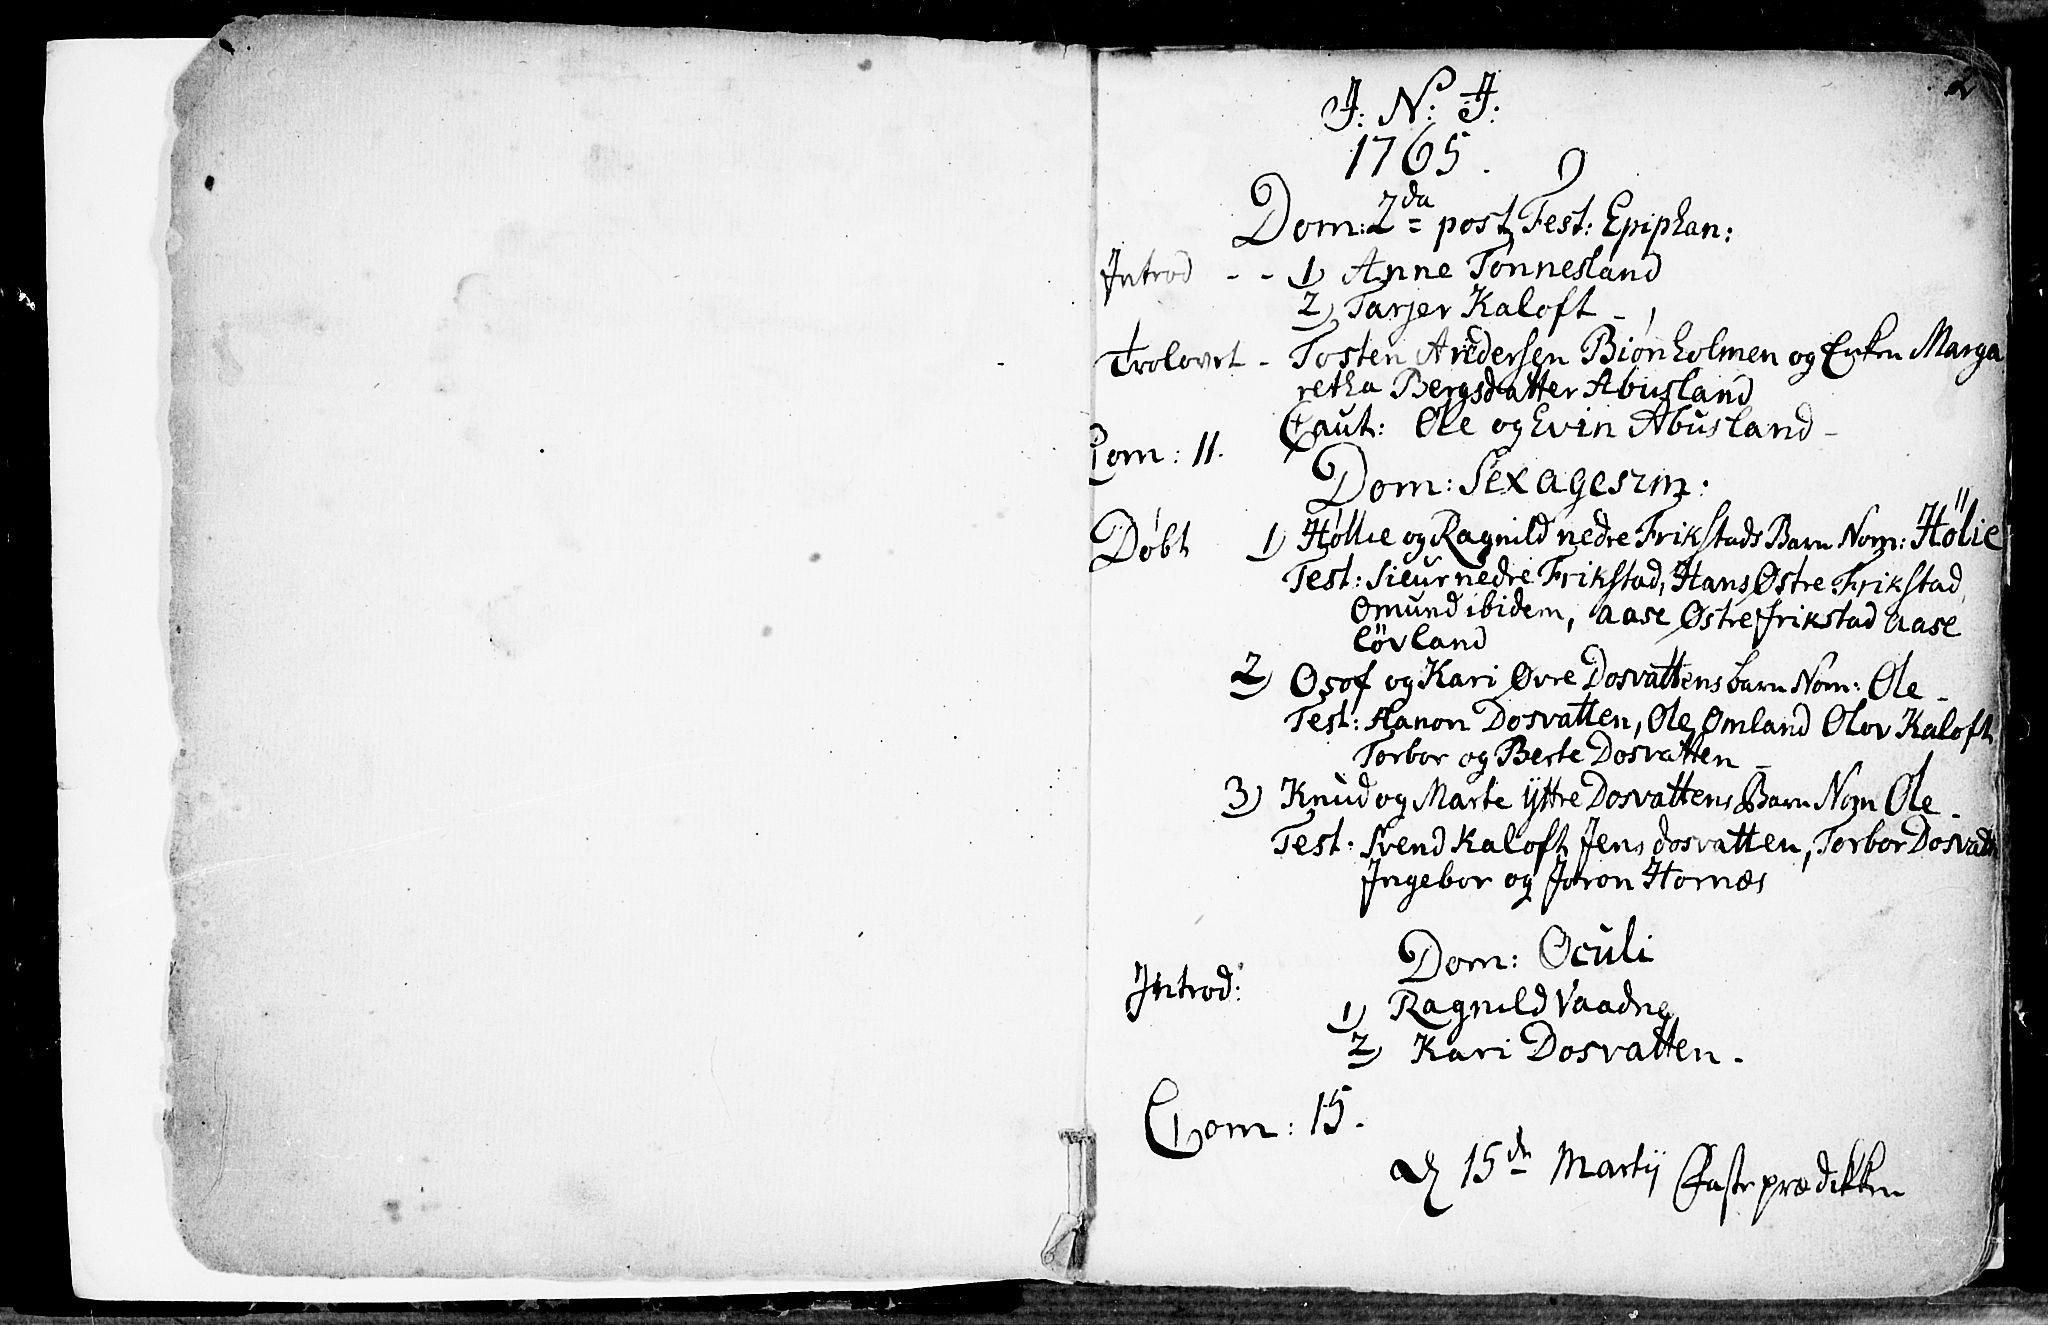 2
J: N: J:
1765.
Dom: 2da post Fest: Epiphan:
Introd - - 1) Anne Tonnesland
2) Tarjer Kaloft -
Trolovet - Tosten Andersen Biørnholmen og Enken Marga
retha Bergsdatter Abusland
Caut: Ole og Evin Abusland -
Com: 11.
Dom: Sexagesim:
Døbt 1) Høllie og Ragnild nedre Frikstads Barn Nom: Hölie
Test: Siur nedre Frikstad, Hans Østre Frikstad,
Omund ibidem, Aase Østre frikstad Aase
lövland
2) Osof og Kari Øvre Dosvattens barn Nom: Ole -
Test: Hanon Dosvatten, Ole Omland Olov Kaloft
Torbor og Berte Dosvatten -
3) Knud og Marte ÿttre Dosvattens Barn Nom Ole -
Test: Svend Kaloft Jens dosvatten, Torbor Dosvattn
Ingebor og Joron Hornæs
Dom: Oculi
Introd:
1) Ragnild Vaadne
2) Kari Dosvatten -
Com: 15.
d 15de Martij Fasteprædikken